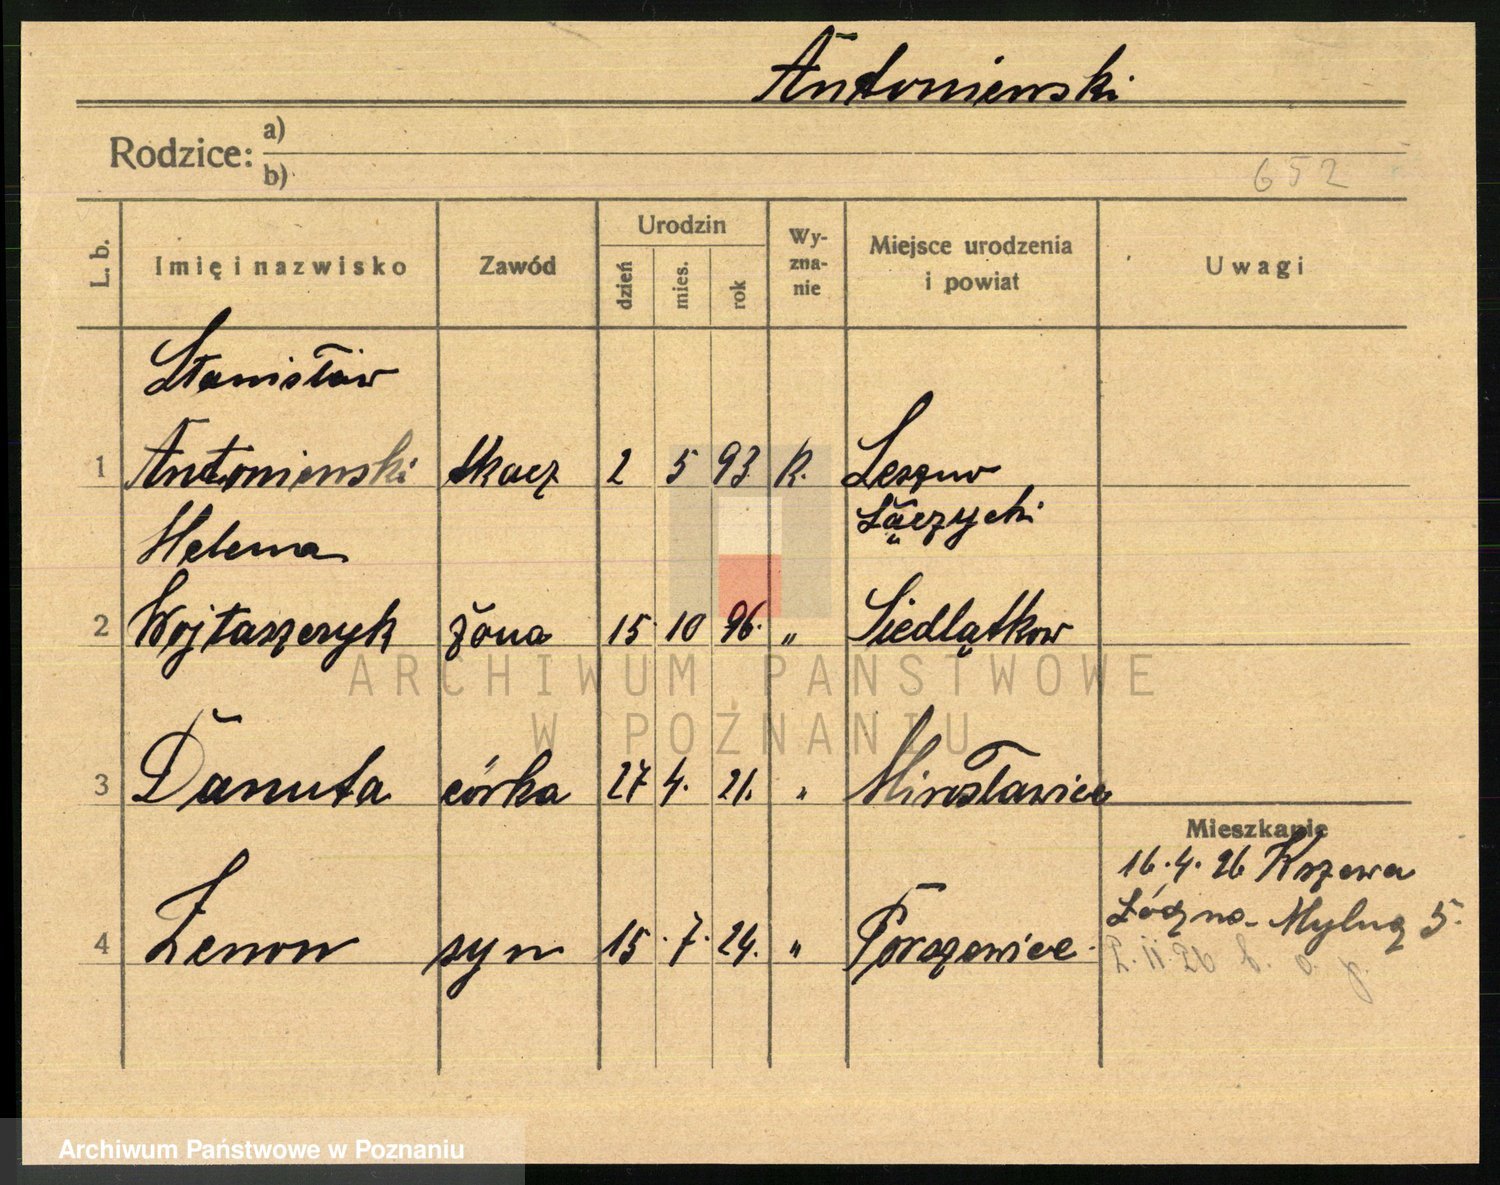 Antoniewski
Rodzice: a)
b)
652
L. b.
Imię i nazwisko
Zawód
Urodzin
dzień
mies.
rok
Wy-
zna-
nie
Miejsce urodzenia
i powiat
Uwagi
Stanisław
1 Antoniewski tkacz 2 5 93 R.
Łęczycki
Helena
2 Wojtaszczyk żona 15. 10 96. " Siedlątkow
3 Danuta córka 27 4. 21. " Mirosławice
Mieszkanie
16.4.26 Kszewa
4 Zenon syn 15. 7. 24. " Porszewice
Łódzna - Mylną 5.
ARCHIWUM PAŃSTWOWE
W POZNANIU
Archiwum Państwowe w Poznaniu